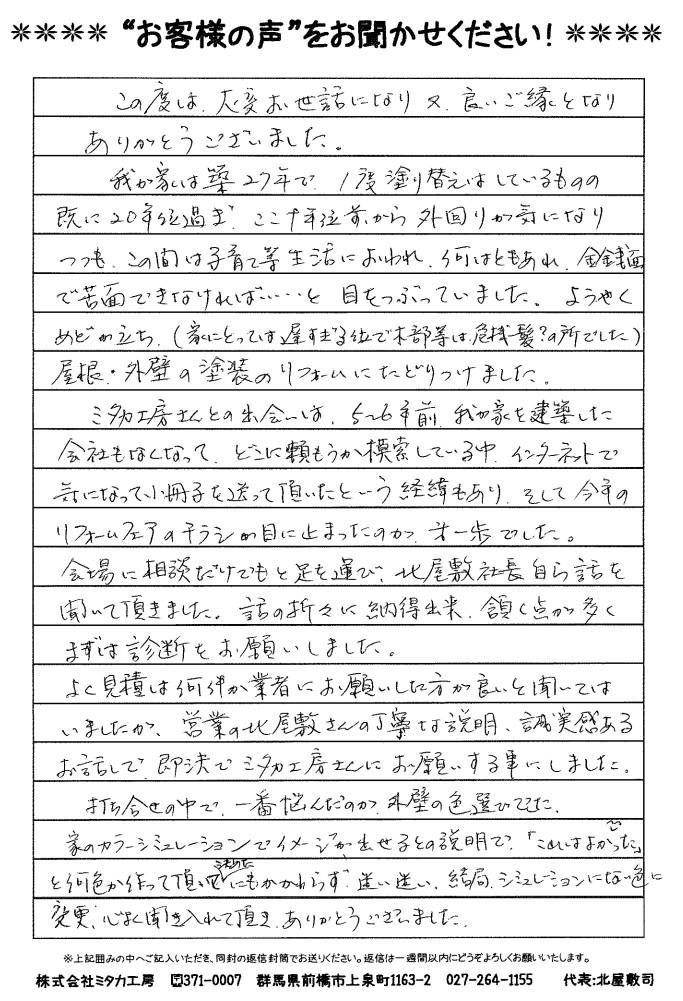 ＊＊＊＊ “お客様の声”をお聞かせください! ＊＊＊＊
この度は、大変お世話になり 又、良いご縁となり
ありがとうございました。
我が家は築27年で、1度塗り替えはしているものの
既に20年位過ぎ、ここ十年位前から 外回りが気になり
つつも、この間は子育て等生活におわれ、何はともあれ、金銭面
で苦面できなければ……と 目をつぶっていました。ようやく
めどが立ち、(家にとっては遅すぎる位で木部等は、危機一髪?の所でした)
屋根・外壁の塗装のリフォームにたどりつけました。
ミタカ工房さんとの出会いは、5~6年前、我が家を建築した
会社もなくなって、どこに頼もうか模索している中、インターネットで
気になって小冊子を送って頂いたという経緯もあり、そして今年の
リフォームフェアのチラシが目に止まったのが、第一歩でした。
会場に相談だけでもと足を運び、北屋敷社長自ら話を
聞いて頂きました。話の折々に納得出来、頷く点が多く
まずは診断をお願いしました。
よく見積は何件か業者にお願いした方が良いと聞いては
いましたが、営業の北屋敷さんの丁寧な説明、誠実感ある
お話しで、即決でミタカ工房さんにお願いする事にしました。
打ち合せの中で、一番悩んだのが、外壁の色選びでした。
家のカラーシミュレーションでイメージが出せるとの説明で、「これはよかった」
と何色か作って頂いて決めたにもかかわらず、迷い迷い、結局、シミュレーションにない色に
変更、心よく聞き入れて頂き、ありがとうございました。
※上記囲みの中へご記入いただき、同封の返信封筒でお送りください。返信は一週間以内にどうぞよろしくお願いいたします。
株式会社ミタカ工房 〒371-0007 群馬県前橋市上泉町1163-2 027-264-1155 代表:北屋敷司